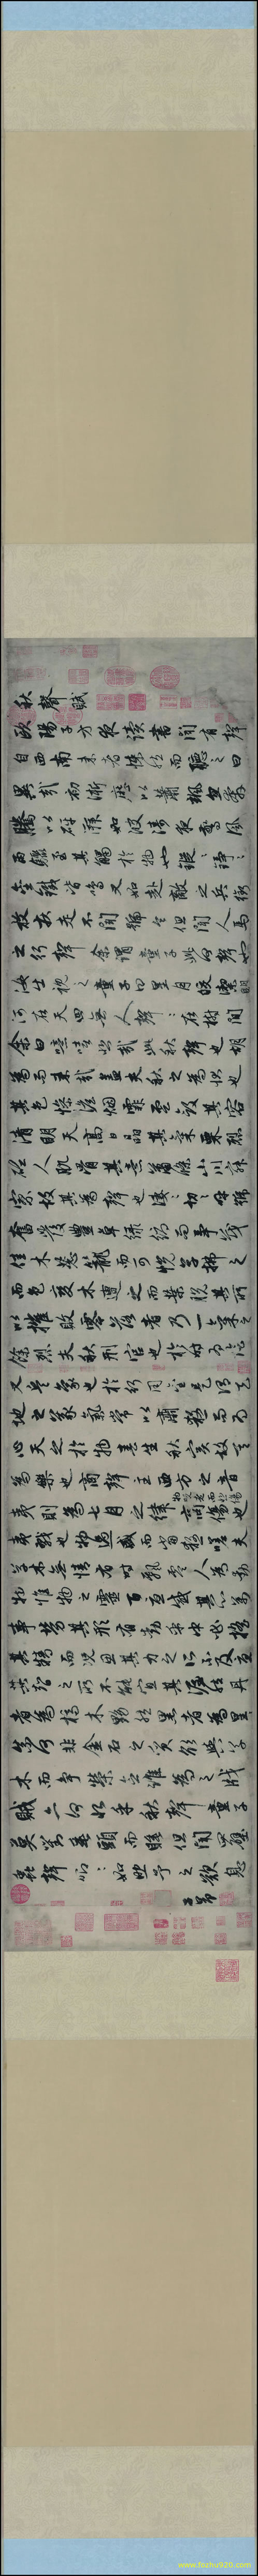 秋聲賦
歐陽子方夜讀書聞有聲
自西南來者悚然而聽之曰
異哉初淅瀝以蕭颯忽奔
騰以砰湃如波濤夜驚風
雨驟至其觸於物也鏦〻錚〻
金鐵皆鳴又如赴敵之兵銜
枚疾走不聞號令但聞人馬
之行聲余謂童子此何聲也
汝出視之童子曰星月皎潔明
河在天四無人聲〻在樹間
余曰噫嘻悲哉此秋聲也胡
為而來哉蓋夫秋之為狀也
其色慘澹烟霏雲斂其容
清明天高日晶其氣栗烈
砭人肌骨其意蕭條山川寂
寥故其為聲也淒〻切〻呼號
奮發豐草綠縟而爭茂
佳木葱蘢而可悅草拂之
而色變木遭之而葉脫其所
以摧敗零落者乃一氣之
餘烈夫秋刑官也於時為陰
又兵象也於行用金是謂天
地之義氣常以肅殺而為
心天之於物春生秋實故其
在樂也商聲主西方之音
夷則為七月之律商傷也物既老而悲傷
夷戮也物過盛而當殺嗟夫
草木無情有時飄零人為動
物惟物之靈百憂感其心萬
事勞其形有動乎中必搖
其精而況思其力之所不及憂
其智之所不能宜其渥然丹
者為槁木黟然黑者為星〻
奈何非金石之質欲與草
木而爭榮念誰為之戕
賊亦何恨乎秋聲童子
莫對垂頭而睡但聞四壁
蟲聲喞〻如助予之歎息
子昂
www.fozhu920.com